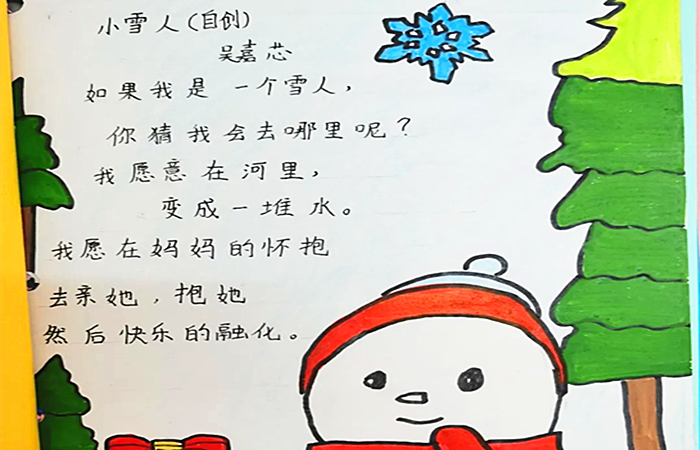 小雪人(自创)
吴嘉芯
如果我是一个雪人，
你猜我会去哪里呢？
我愿意在河里，
变成一堆水。
我愿在妈妈的怀抱
去亲她，抱她
然后快乐的融化。